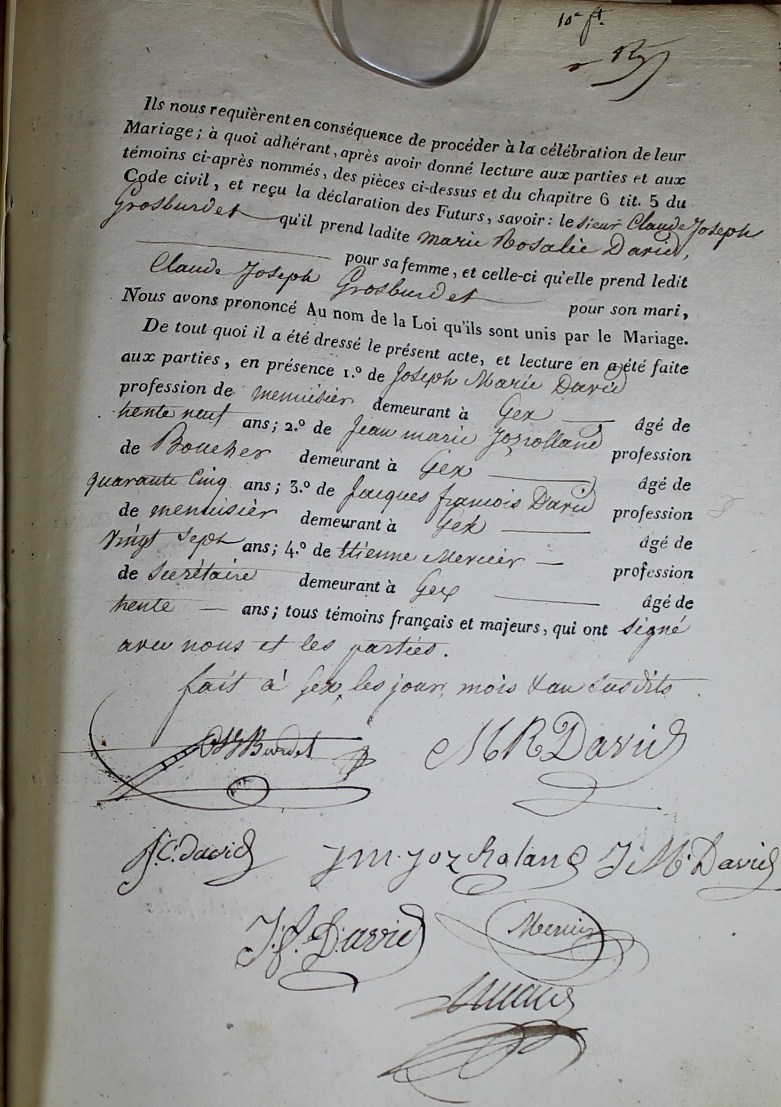 Ils nous requièrent en conséquence de procéder à la célébration de leur
Mariage ; à quoi adhérant, après avoir donné lecture aux parties et aux
témoins ci-après nommés, des pièces ci-dessus et du chapitre 6 tit. 5 du
Code civil, et reçu la déclaration des Futurs, savoir : le sieur Claude Joseph
Grosburdet qu'il prend ladite marie Rosalie David,
pour sa femme, et celle-ci qu'elle prend ledit
Claude Joseph Grosburdet pour son mari,
Nous avons prononcé Au nom de la Loi qu'ils sont unis par le Mariage.
De tout quoi il a été dressé le présent acte, et lecture en a été faite
aux parties, en présence 1.º de Joseph Marie David
profession de menuisier demeurant à Gex âgé de
trente neuf ans ; 2.º de Jean marie Jozrolland profession
de Boucher demeurant à Gex âgé de
quarante Cinq ans ; 3.º de Jacques francois David profession
de menuisier demeurant à Gex âgé de
Vingt Sept ans ; 4.º de Etienne Mercier profession
de Secrétaire demeurant à Gex âgé de
trente ans ; tous témoins français et majeurs, qui ont signé
avec nous et les parties.
fait à Gex, les jour, mois & an susdits.
Burdet MRDavid
f.C. David J M. Joz Roland J. M. David
J. f. David Mercier